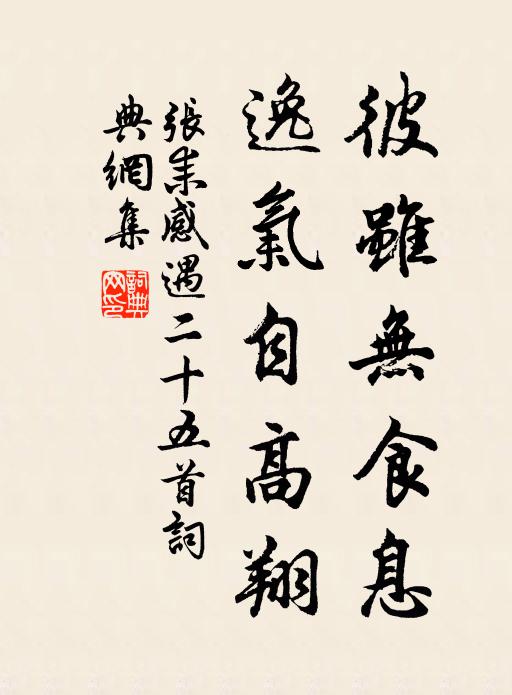 彼雖無食息
逸氣自高翔
張耒感遇二十五首詞
典網集
詞典网印